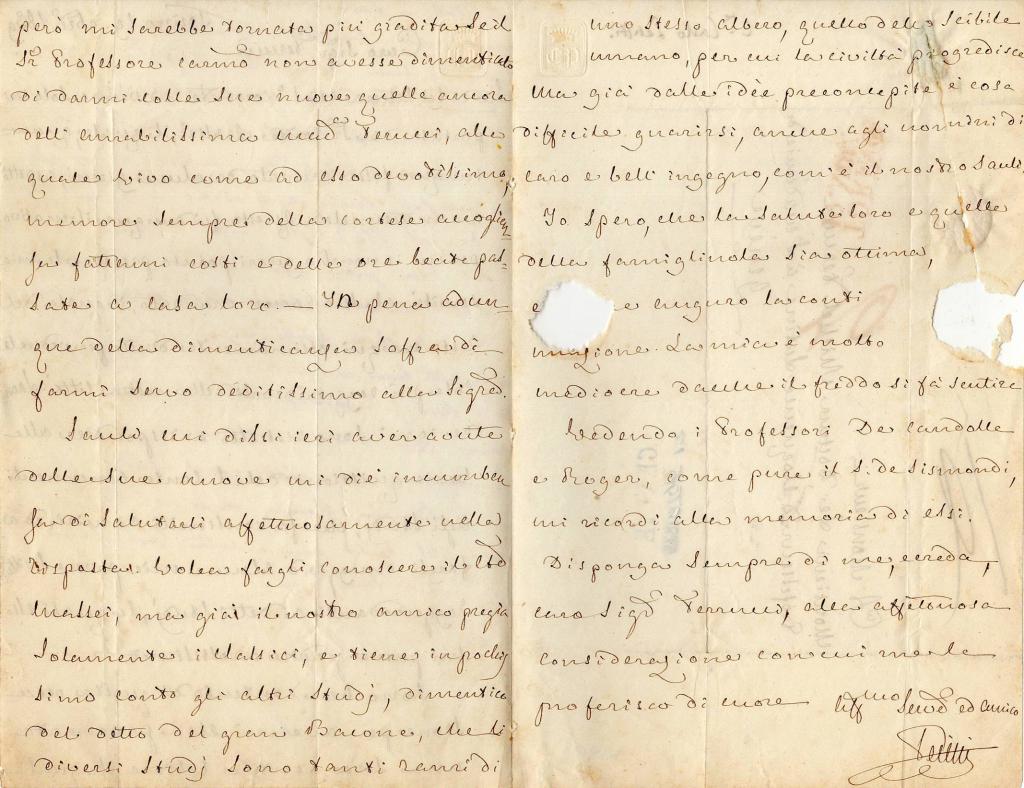 però mi sarebbe tornata più gradita se il
Sr Professore carmo non avesse dimenticato
di darmi colle sue nuove quelle ancora
dell' amabilissima mad.ma Ferucci, alla
quale vivo come ad esso devotissimo,
memore sempre della cortese accoglien=
za fattami costì e delle ore beate pas=
sate a casa loro. — In pena adun=
que della dimenticanza soffra di
farmi servo deditissimo alla Sigra
Sauli cui dissi ieri aver avute
delle sue nuove mi diè incumben
za di salutarli affettuosamente nella
risposta. Volea fargli conoscere il
Massei, ma già il nostro amico pregia
solamente i Classici, e tiene in pochis
simo conto gli altri studj, dimentico
del detto del gran Bacone, che li
diversi studj sono tanti rami di
uno stesso albero, quello dello Scibile
umano, per cui la civiltà progredisce
Ma già dalle idèe preconcepite è cosa
difficile guarirsi, anche agli uomini di
raro e bell' ingegno, com' è il nostro Sauli.
Io spero, che la salute loro e quella
della famigliuola sia ottima,
e auguro la conti
nuazione. La mia è molto
mediocre dacchè il freddo si fà sentire
Vedendo i Professori De Candolle
e Roger, come pure il S. de Sismondi,
mi ricordi alla memoria di essi.
Disponga sempre di me, e creda,
caro Sigr Ferrucci, alla affettuosa
considerazione con cui me le
proferisco di cuore
Affmo Servo ed amico